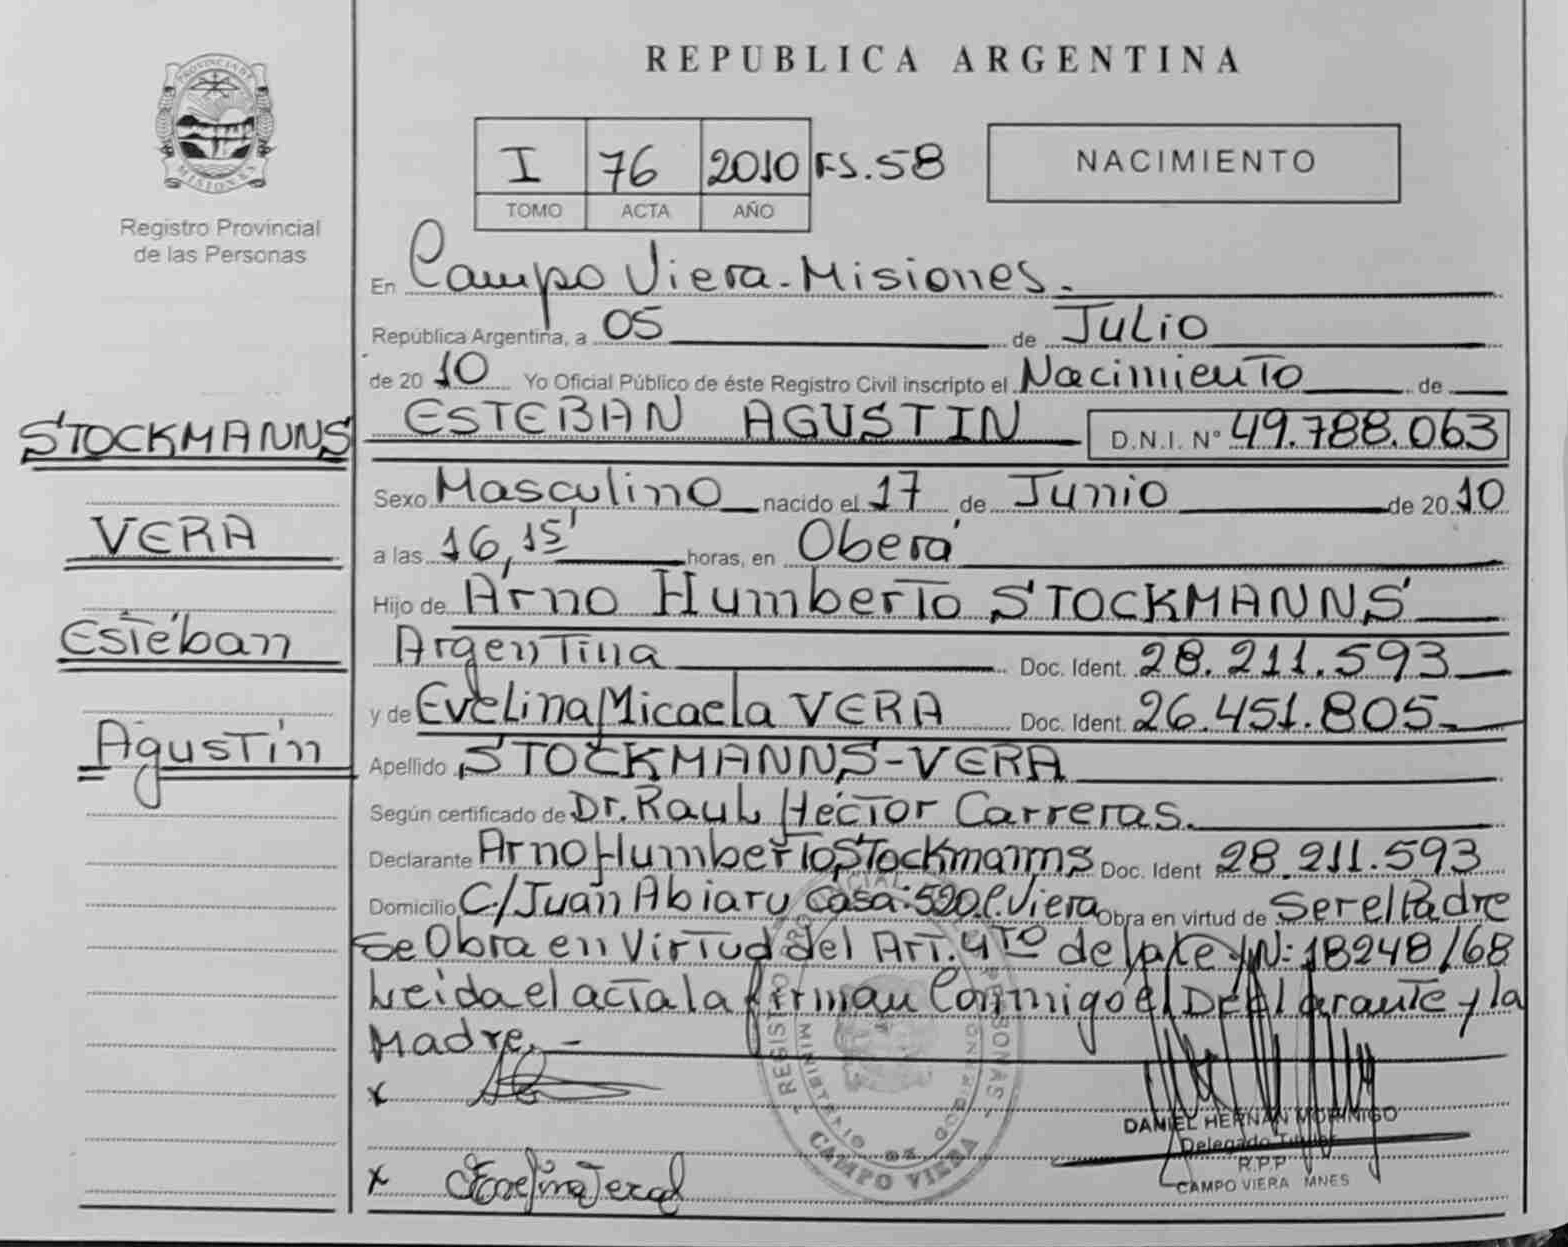 PROVINCIA DE
MISIONES
Registro Provincial
de las Personas
STOCKMANNS
VERA
Estéban
Agustín
REPUBLICA ARGENTINA
I 76 2010 FS.58
TOMO ACTA AÑO
NACIMIENTO
En Campo Viera - Misiones.
República Argentina, a 05 de Julio
de 20 10 Yo Oficial Público de éste Registro Civil inscripto el Nacimiento de
ESTEBAN AGUSTIN D.N.I. N° 49.788.063
Sexo Masculino nacido el 17 de Junio de 20 10
a las 16,15' horas, en Oberá
Hijo de Arno Humberto STOCKMANNS
Argentina Doc. Ident. 28.211.593
y de Evelina Micaela VERA Doc. Ident. 26.451.805-
Apellido STOCKMANNS-VERA
Según certificado de Dr. Raul Héctor Carreras.
Declarante Arno Humberto Stockmanns Doc. Ident 28.211.593
Domicilio C/Juan Abiaru Casa:520.C.Viera Obra en virtud de Ser el Padre
Se Obra en Virtud del Art. 4to de la Ley N: 18248/68
Leida el acta la firman Conmigo el Declarante y la
Madre.-
x
x
REGISTRO
CAMPO VIERA
DANIEL HERNAN MORINIGO
Delegado Titular
R.P.P
CAMPO VIERA MNES